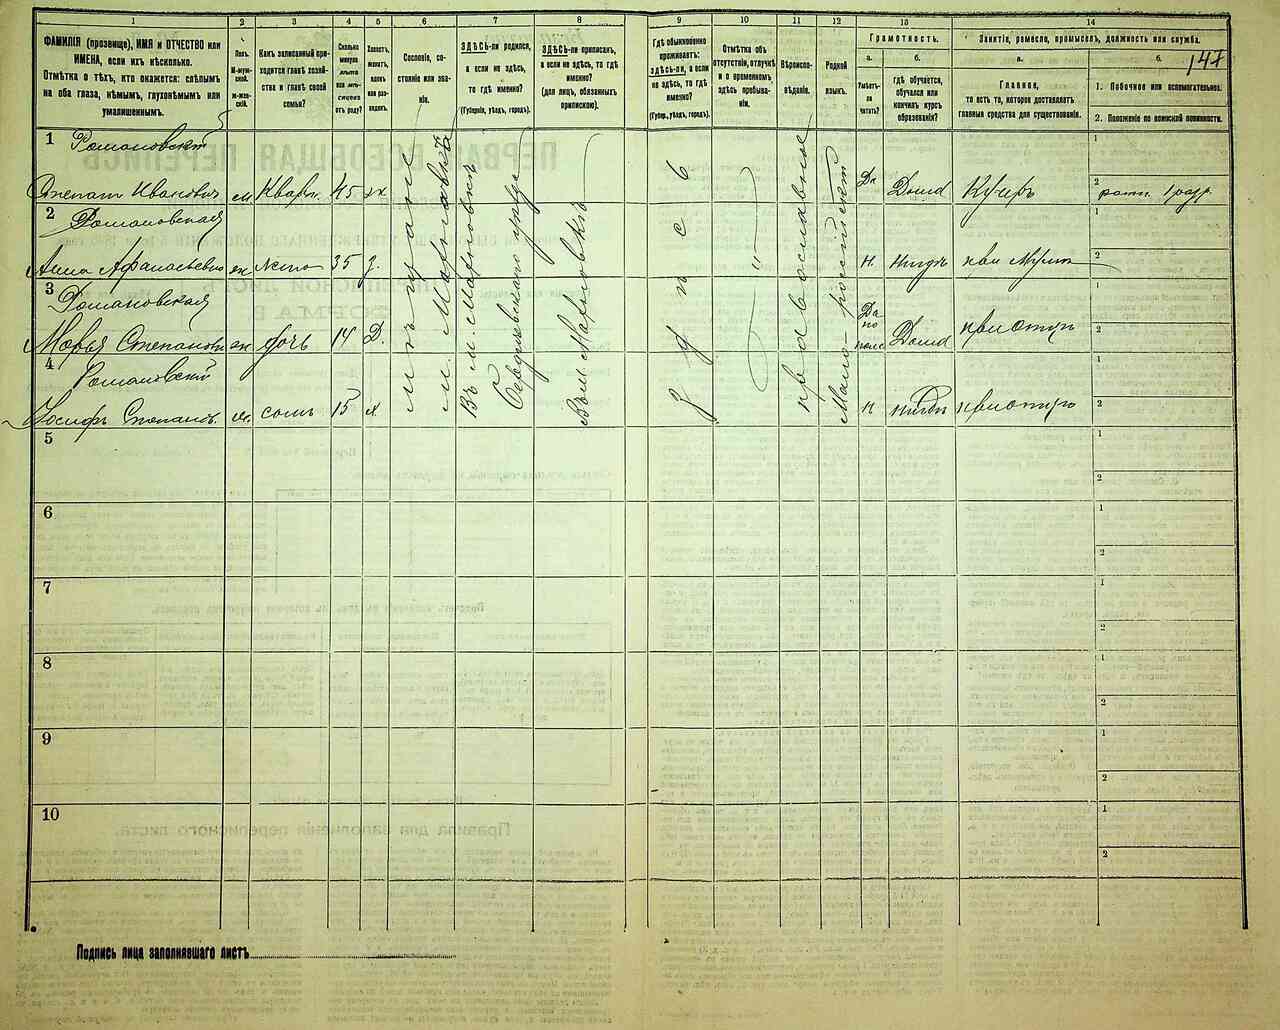 1 2 3 4 5 6 7 8 9 10 11 12 13 14
147
ФАМИЛІЯ (прозвище), ИМЯ и ОТЧЕСТВО или
ИМЕНА, если ихъ нѣсколько.
Отмѣтка о тѣхъ, кто окажется: слѣпымъ
на оба глаза, нѣмымъ, глухонѣмымъ или
умалишеннымъ.
Полъ.
М-муж-
ской.
Ж-жен-
скій.
Какъ записанный при-
ходится главѣ хозяй-
ства и главѣ своей
семьи?
Сколько
минуло
лѣтъ
или мѣ-
сяцевъ
отъ роду?
Холостъ,
женатъ,
вдовъ
или раз-
веденъ.
Сословіе, со-
стояніе или зва-
ніе.
ЗДѢСЬ-ли родился,
а если не здѣсь,
то гдѣ именно?
(Губернія, уѣздъ, городъ).
ЗДѢСЬ-ли приписанъ,
а если не здѣсь, то гдѣ
именно?
(для лицъ, обязанныхъ
припискою).
Гдѣ обыкновенно
проживаетъ:
здѣсь-ли, а если
не здѣсь, то гдѣ
именно?
(Губер., уѣздъ, городъ).
Отмѣтка объ
отсутствіи, отлучкѣ
и о временномъ
здѣсь пребыва-
ніи.
Вѣроиспо-
вѣданіе.
Родной
языкъ.
Грамотность.
а.
Умѣетъ-
ли
читать?
б.
гдѣ обучается,
обучался или
кончилъ курсъ
образованія?
Занятіе, ремесло, промыселъ, должность или служба.
а.
Главное,
то есть то, которое доставляетъ
главныя средства для существованія.
б.
1. Побочное или вспомогательное.
2. Положеніе по воинской повинности.
1 Романовскій
Степанъ Ивановичъ м. Кварт. 45 ж
мѣщане
м. Марнавка
Въ м.
уѣзда
Въ м.
здѣсь
"
православные
Мало-россійскій
Да Дома Кучеръ
1
2 ратн. 1 разр.
2 Романовская
Анна Афанасьевна ж жена 35 з.
н. нигдѣ при мужѣ
1
2
3 Романовская
Марья Степановна ж дочь 14 Д.
Да по Дома при отцѣ
1
2
4 Романовскій
Іосифъ Степанов. м. сынъ 15 х
н нигдѣ при отцѣ
1
2
5
1
2
6
1
2
7
1
2
8
1
2
9
1
2
10
1
2
Подпись лица заполнявшаго листъ